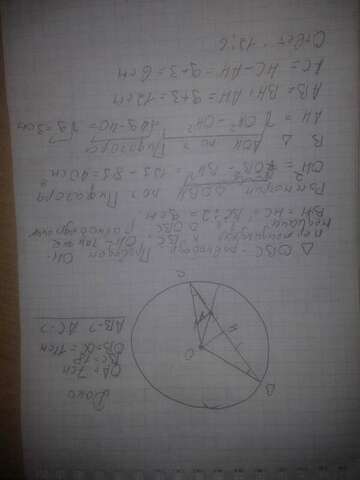 Дано
OA = 7см
BC = 18
OB = OC = 11см
AB-? AC-?
C
O
B
H
Δ OBC - равнобедр. Проведем OH
перпендикуляр к BC. OH - так же
медиана Δ OBC равнобедренный
BH = HC = BC : 2 = 9см.
Рассмотрим Δ OBH по Пифагора
OH² = OB² - BH² = 121 - 81 = 40см²
В Δ AOH по Пифагора
AH = √OA² - OH² = √49-40 = √9 = 3см
AB = BH + AH = 9+3 = 12см
AC = HC - AH = 9-3 = 6см
Ответ - 12; 6